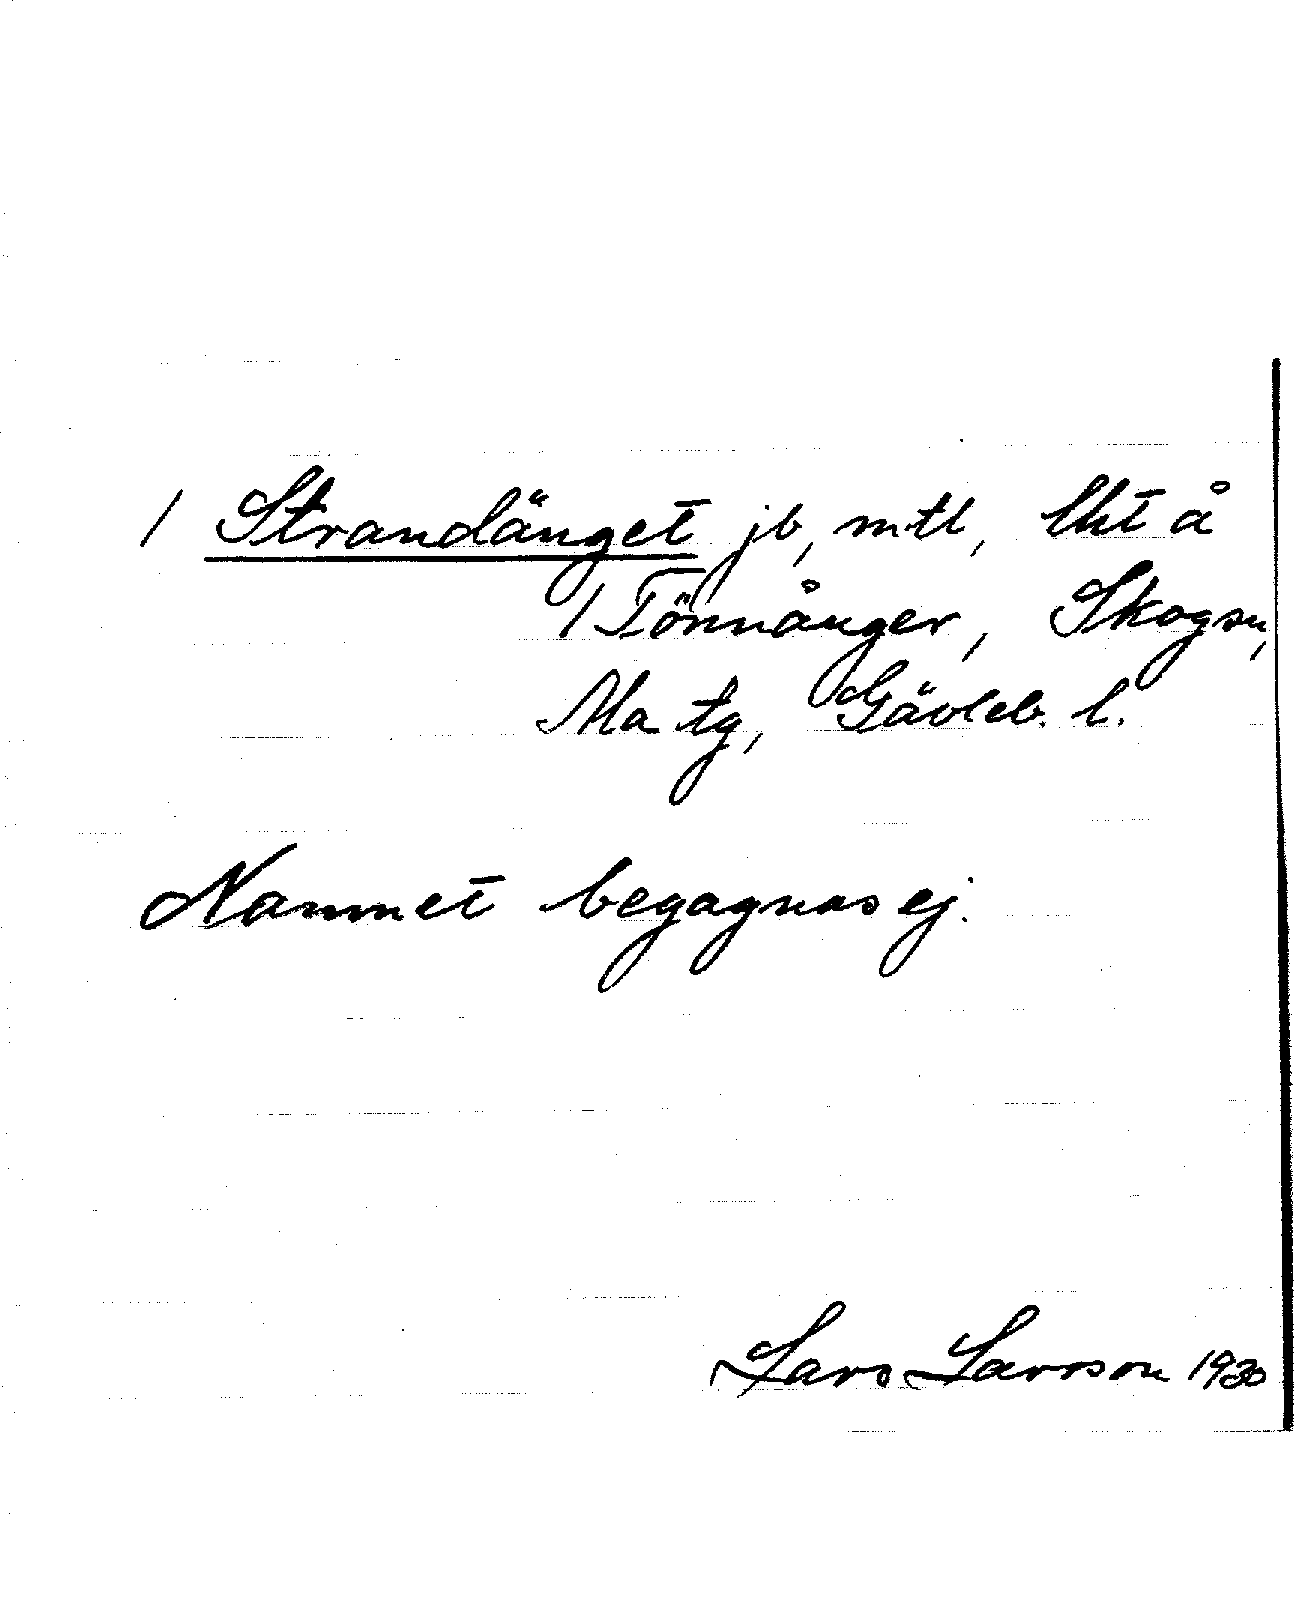 / Strandänget jb, mtl, lht å
/ Tönnånger, Skogsn,
Ala tg, Gävleb. l.
Namnet begagnas ej.
Lars Larsson 1930